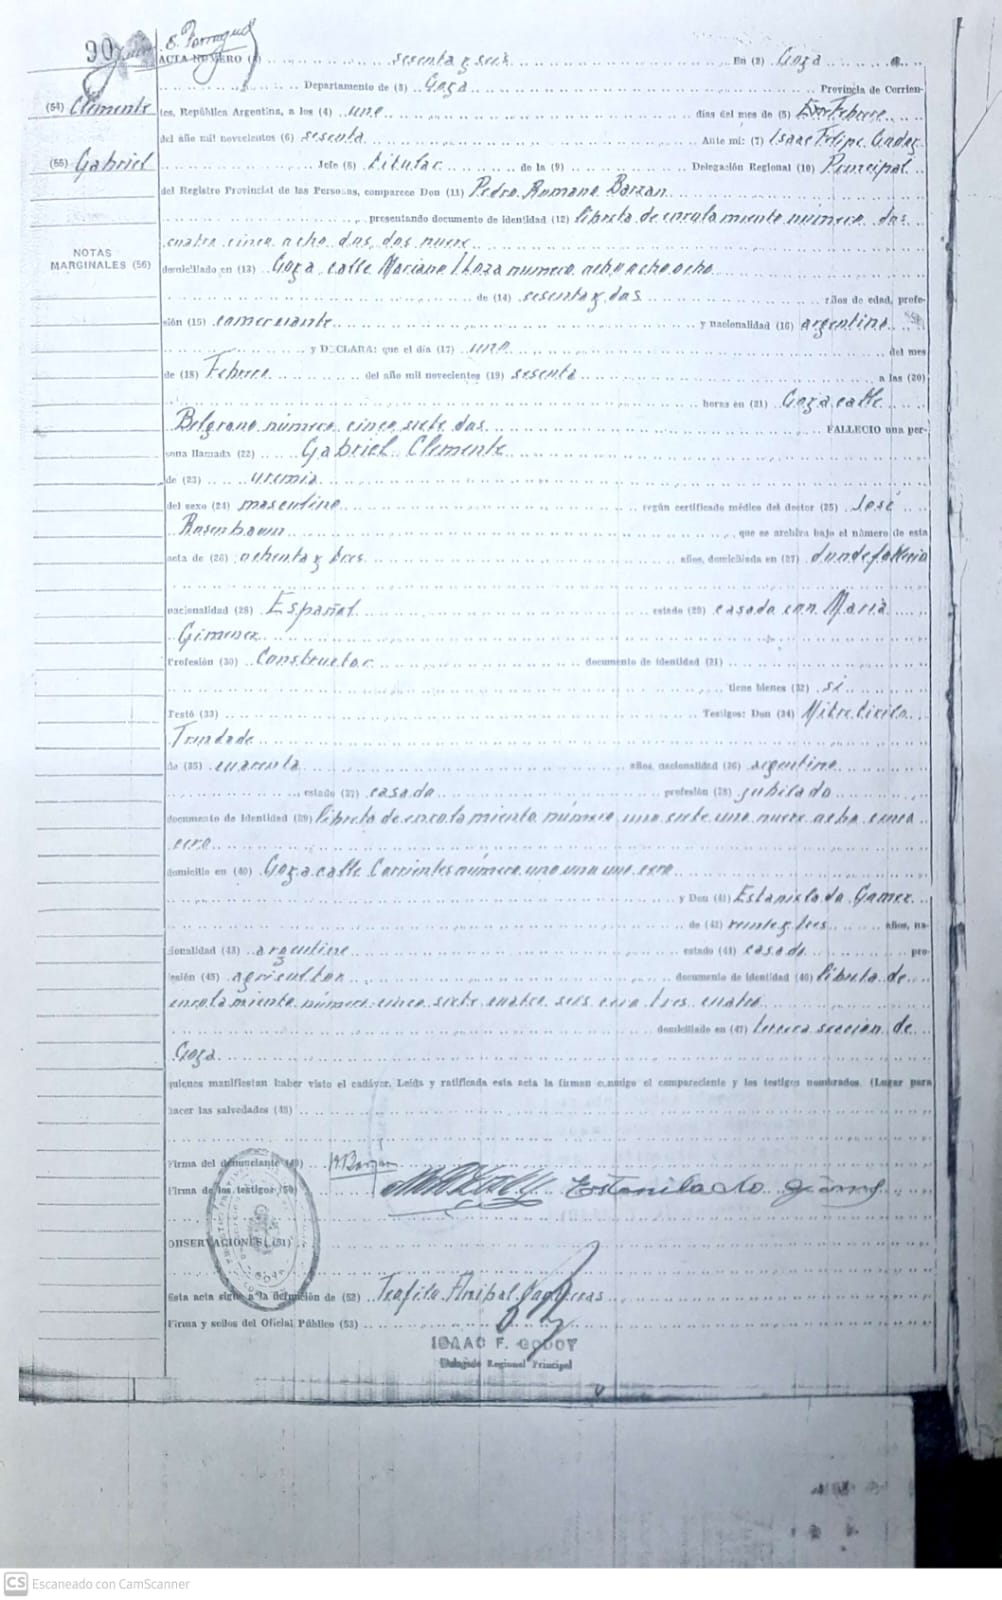 90
ACTA NUMERO (1) sesenta y seis En (2) Goya
Departamento de (3) Goya Provincia de Corrien-
(54) Clemente
tes, República Argentina, a los (4) uno días del mes de (5) Febrero
del año mil novecientos (6) sesenta Ante mí: (7) Isaac Felipe Godoy
(55) Gabriel
Jefe (8) titular de la (9) Delegación Regional (10) Principal
del Registro Provincial de las Personas, comparece Don (11) Pedro Romano Barzan
presentando documento de identidad (12) libreta de enrolamiento número dos
cuatro cinco ocho dos dos nueve
NOTAS
MARGINALES (56)
domiciliado en (13) Goya calle Mariano I Loza numero ocho ocho ocho
de (14) sesenta y dos años de edad, profe-
sión (15) comerciante y nacionalidad (16) argentino
y DECLARA: que el día (17) uno del mes
de (18) Febrero del año mil novecientos (19) sesenta a las (20)
horas en (21) Goya calle
Belgrano número cinco siete dos FALLECIO una per-
sona llamada (22) Gabriel Clemente
de (23) uremia
del sexo (24) masculino según certificado médico del doctor (25) José
Rosenbaum que se archiva bajo el número de esta
acta de (26) ochenta y tres años, domiciliada en (27) donde falleció
nacionalidad (28) Español estado (29) casado con María
Gimenez
Profesión (30) Constructor documento de identidad (31)
tiene bienes (32) si
Testó (33) Testigos: Don (34) Mitre Cirilo
Trindade
de (35) cuarenta años, nacionalidad (36) argentino
estado (37) casado profesión (38) jubilado
documento de identidad (39) libreta de enrolamiento número uno siete uno nueve ocho cinco
cero
domicilio en (40) Goya calle Corrientes número uno uno uno cero
y Don (41) Estanislado Gamez
de (42) veinte y tres años, na-
cionalidad (43) argentino estado (44) casado pro-
fesión (45) agricultor documento de identidad (46) libreta de
enrolamiento número cinco siete cuatro seis cero tres cuatro
domiciliado en (47) tercera sección de
Goya
quienes manifiestan haber visto el cadáver. Leída y ratificada esta acta la firman conmigo el compareciente y los testigos nombrados. (Lugar para
hacer las salvedades (48)
Firma del denunciante (49) P. Barzan
Firma de los testigos (50) Estanilado Gamez
OBSERVACIONES (51)
Esta acta sigue a la defunción de (52) Teofilo Anibal
Firma y sellos del Oficial Público (53)
ISAAC F. GODOY
Delegado Regional Principal
CS Escaneado con CamScanner